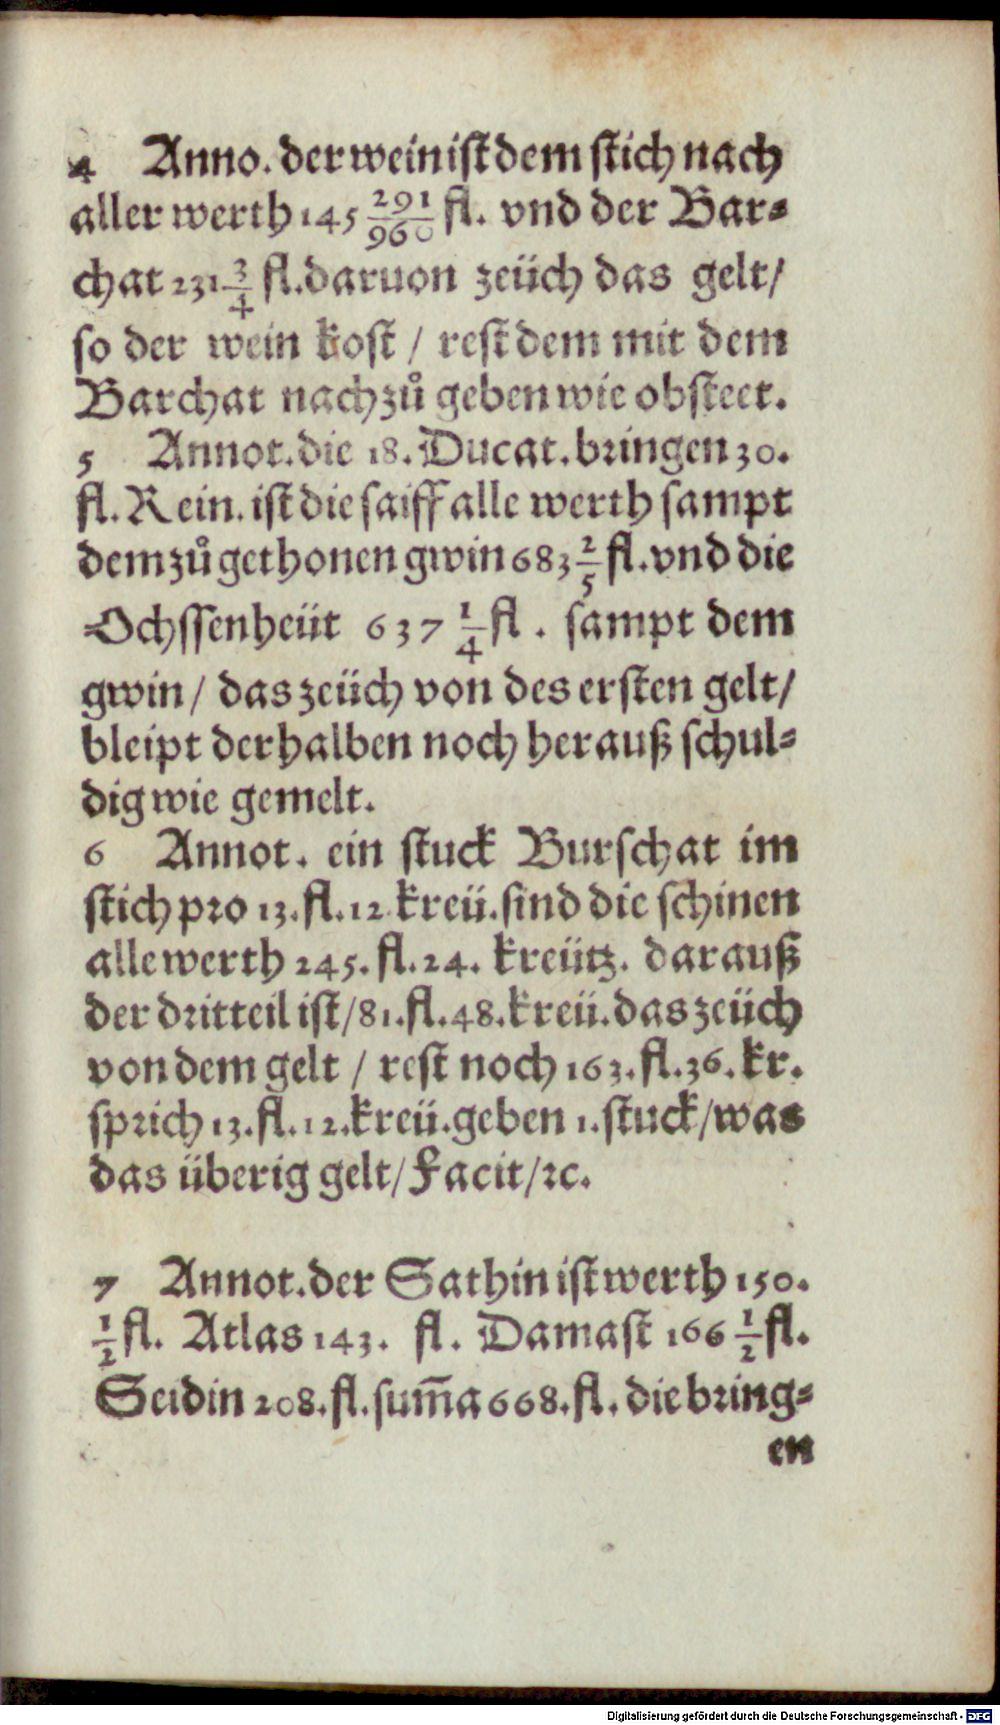 4 Anno. der wein ist dem stich nach
aller werth 145 291/960 fl. vnd der Bar-
chat 231 3/4 fl. daruon zeüch das gelt/
so der wein kost / rest dem mit dem
Barchat nachzů geben wie obsteet.
5 Annot. die 18. Ducat. bringen 30.
fl. Rein. ist die saiff alle werth sampt
dem zůgethonen gwin 683 2/5 fl. vnd die
Ochssenheüt 637 1/4 fl. sampt dem
gwin / das zeüch von des ersten gelt/
bleipt derhalben noch herauß schul-
dig wie gemelt.
6 Annot. ein stuck Burschat im
stich pro 13. fl. 12 kreü. sind die schinen
alle werth 245. fl. 24. kreütz. darauß
der dritteil ist/81. fl. 48. kreü. das zeüch
von dem gelt / rest noch 163. fl. 36. kr.
sprich 13. fl. 12. kreü. geben 1. stuck/was
das überig gelt/Facit/ꝛc.
7 Annot. der Sathin ist werth 150.
1/2 fl. Atlas 143. fl. Damast 166 1/2 fl.
Seidin 208. fl. sum̄a 668. fl. die bring-
en
Digitalisierung gefördert durch die Deutsche Forschungsgemeinschaft - DFG